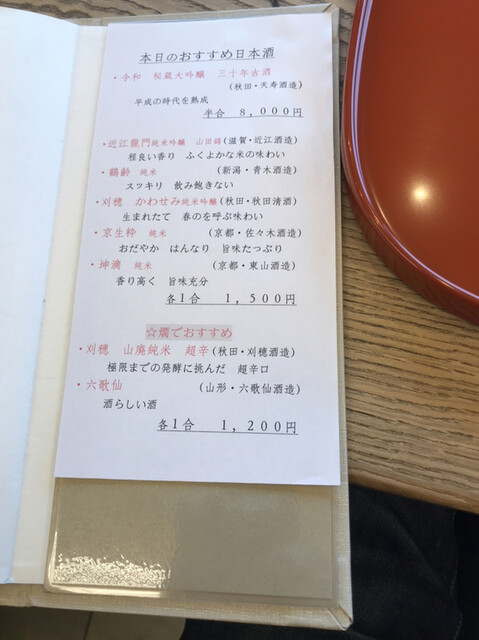 本日のおすすめ日本酒
・令和　秘蔵大吟醸　三十年古酒
(秋田・天寿酒造)
平成の時代を熟成
半合　8,000円
・近江龍門純米吟醸　山田錦(滋賀・近江酒造)
程良い香り　ふくよかな米の味わい
・鶴齢　純米　(新潟・青木酒造)
スッキリ　飲み飽きない
・刈穂　かわせみ純米吟醸(秋田・秋田清酒)
生まれたて　春のを呼ぶ味わい
・京生粋　純米　(京都・佐々木酒造)
おだやか　はんなり　旨味たっぷり
・坤滴　純米　(京都・東山酒造)
香り高く　旨味充分
各1合　1,500円
☆燗でおすすめ
・刈穂　山廃純米　超辛(秋田・刈穂酒造)
極限までの発酵に挑んだ　超辛口
・六歌仙　(山形・六歌仙酒造)
酒らしい酒
各1合　1,200円